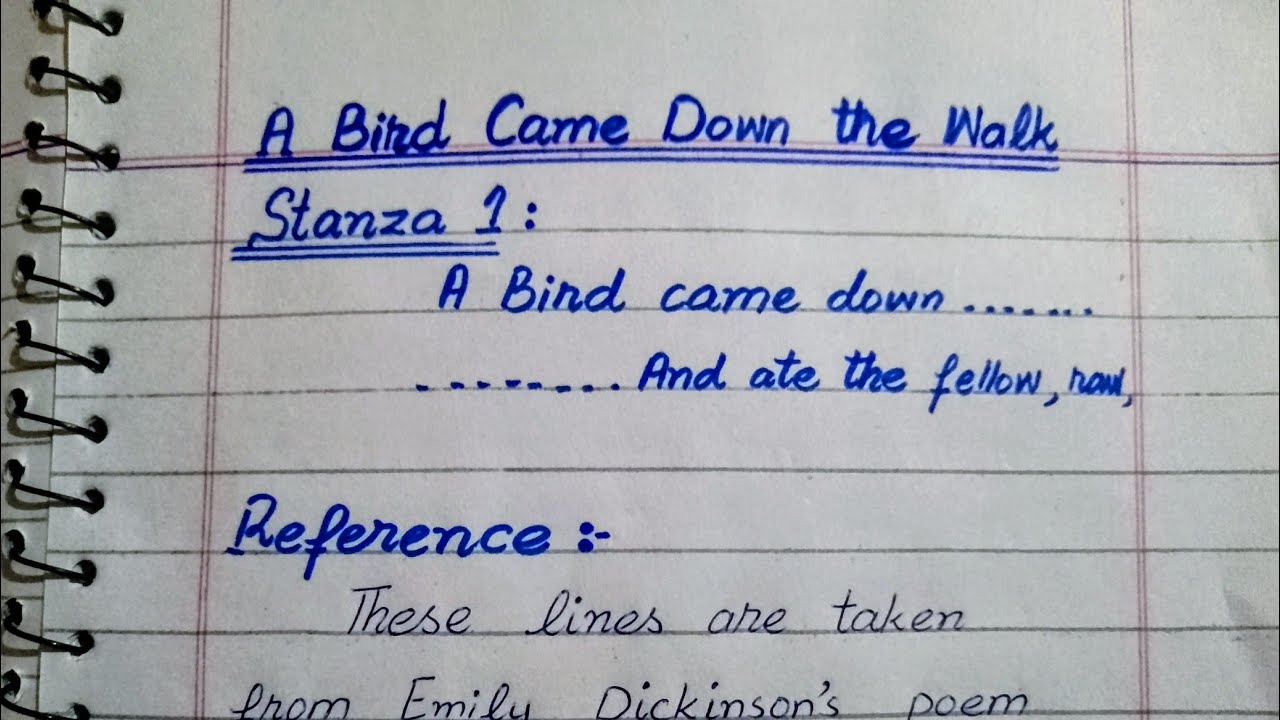 A Bird Came Down the Walk
Stanza 1:
A Bird came down .......
......... And ate the fellow, raw,
Reference :-
These lines are taken
from Emily Dickinson's poem